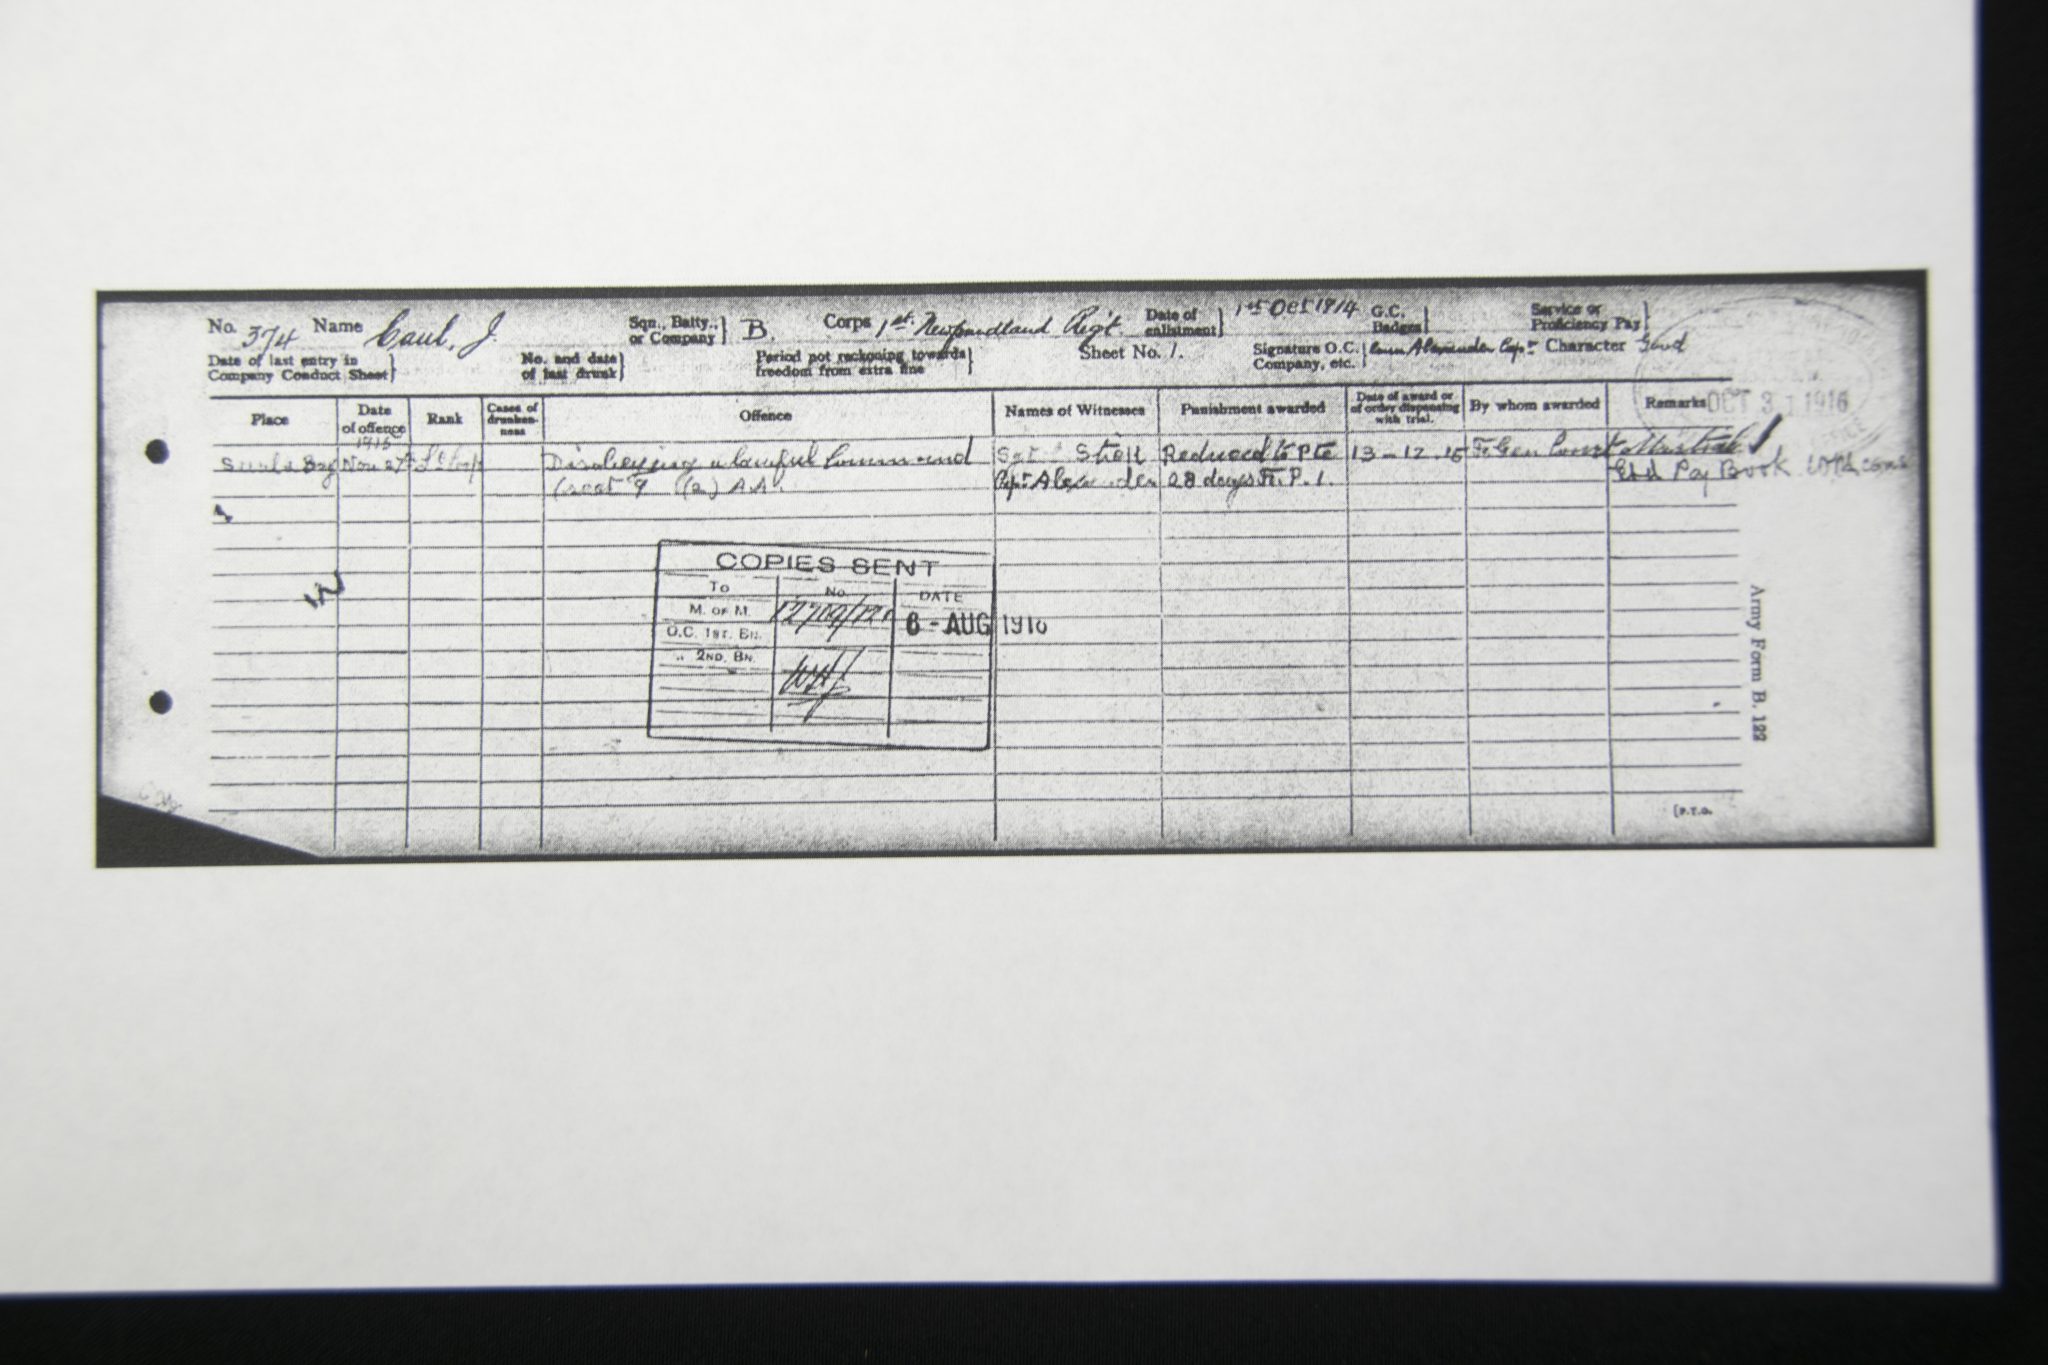 No. 374 Name Caul. J. Sqn., Batty., or Company} B. Corps 1st. Newfoundland Regt. Date of enlistment} 1st Oct 1914 G.C. Badges} Service or Proficiency Pay}
Date of last entry in Company Conduct Sheet} No. and date of last drunk} Period not reckoning towards freedom from extra fine} Sheet No. 1. Signature O.C. Company, etc.} Alexander Capt Character Good
Place Date of offence Rank Cases of drunkenness Offence Names of Witnesses Punishment awarded Date of award or of order dispensing with trial. By whom awarded Remarks
OCT 31 1916
1915
Suvla Bay Nov 27th L/Corp Disobeying a lawful Command Sgt Reduced to Pte 13-12.15 F. Gen Court Martial
(sect 9 (2) A.A. Capt Alexander 28 days F.P.1. Pay Book
COPIES SENT
To No. DATE
M. OF M.
O.C. 1ST. BN. 8-AUG 1916
„ 2ND. BN.
Army Form B. 122
(P.T.O.